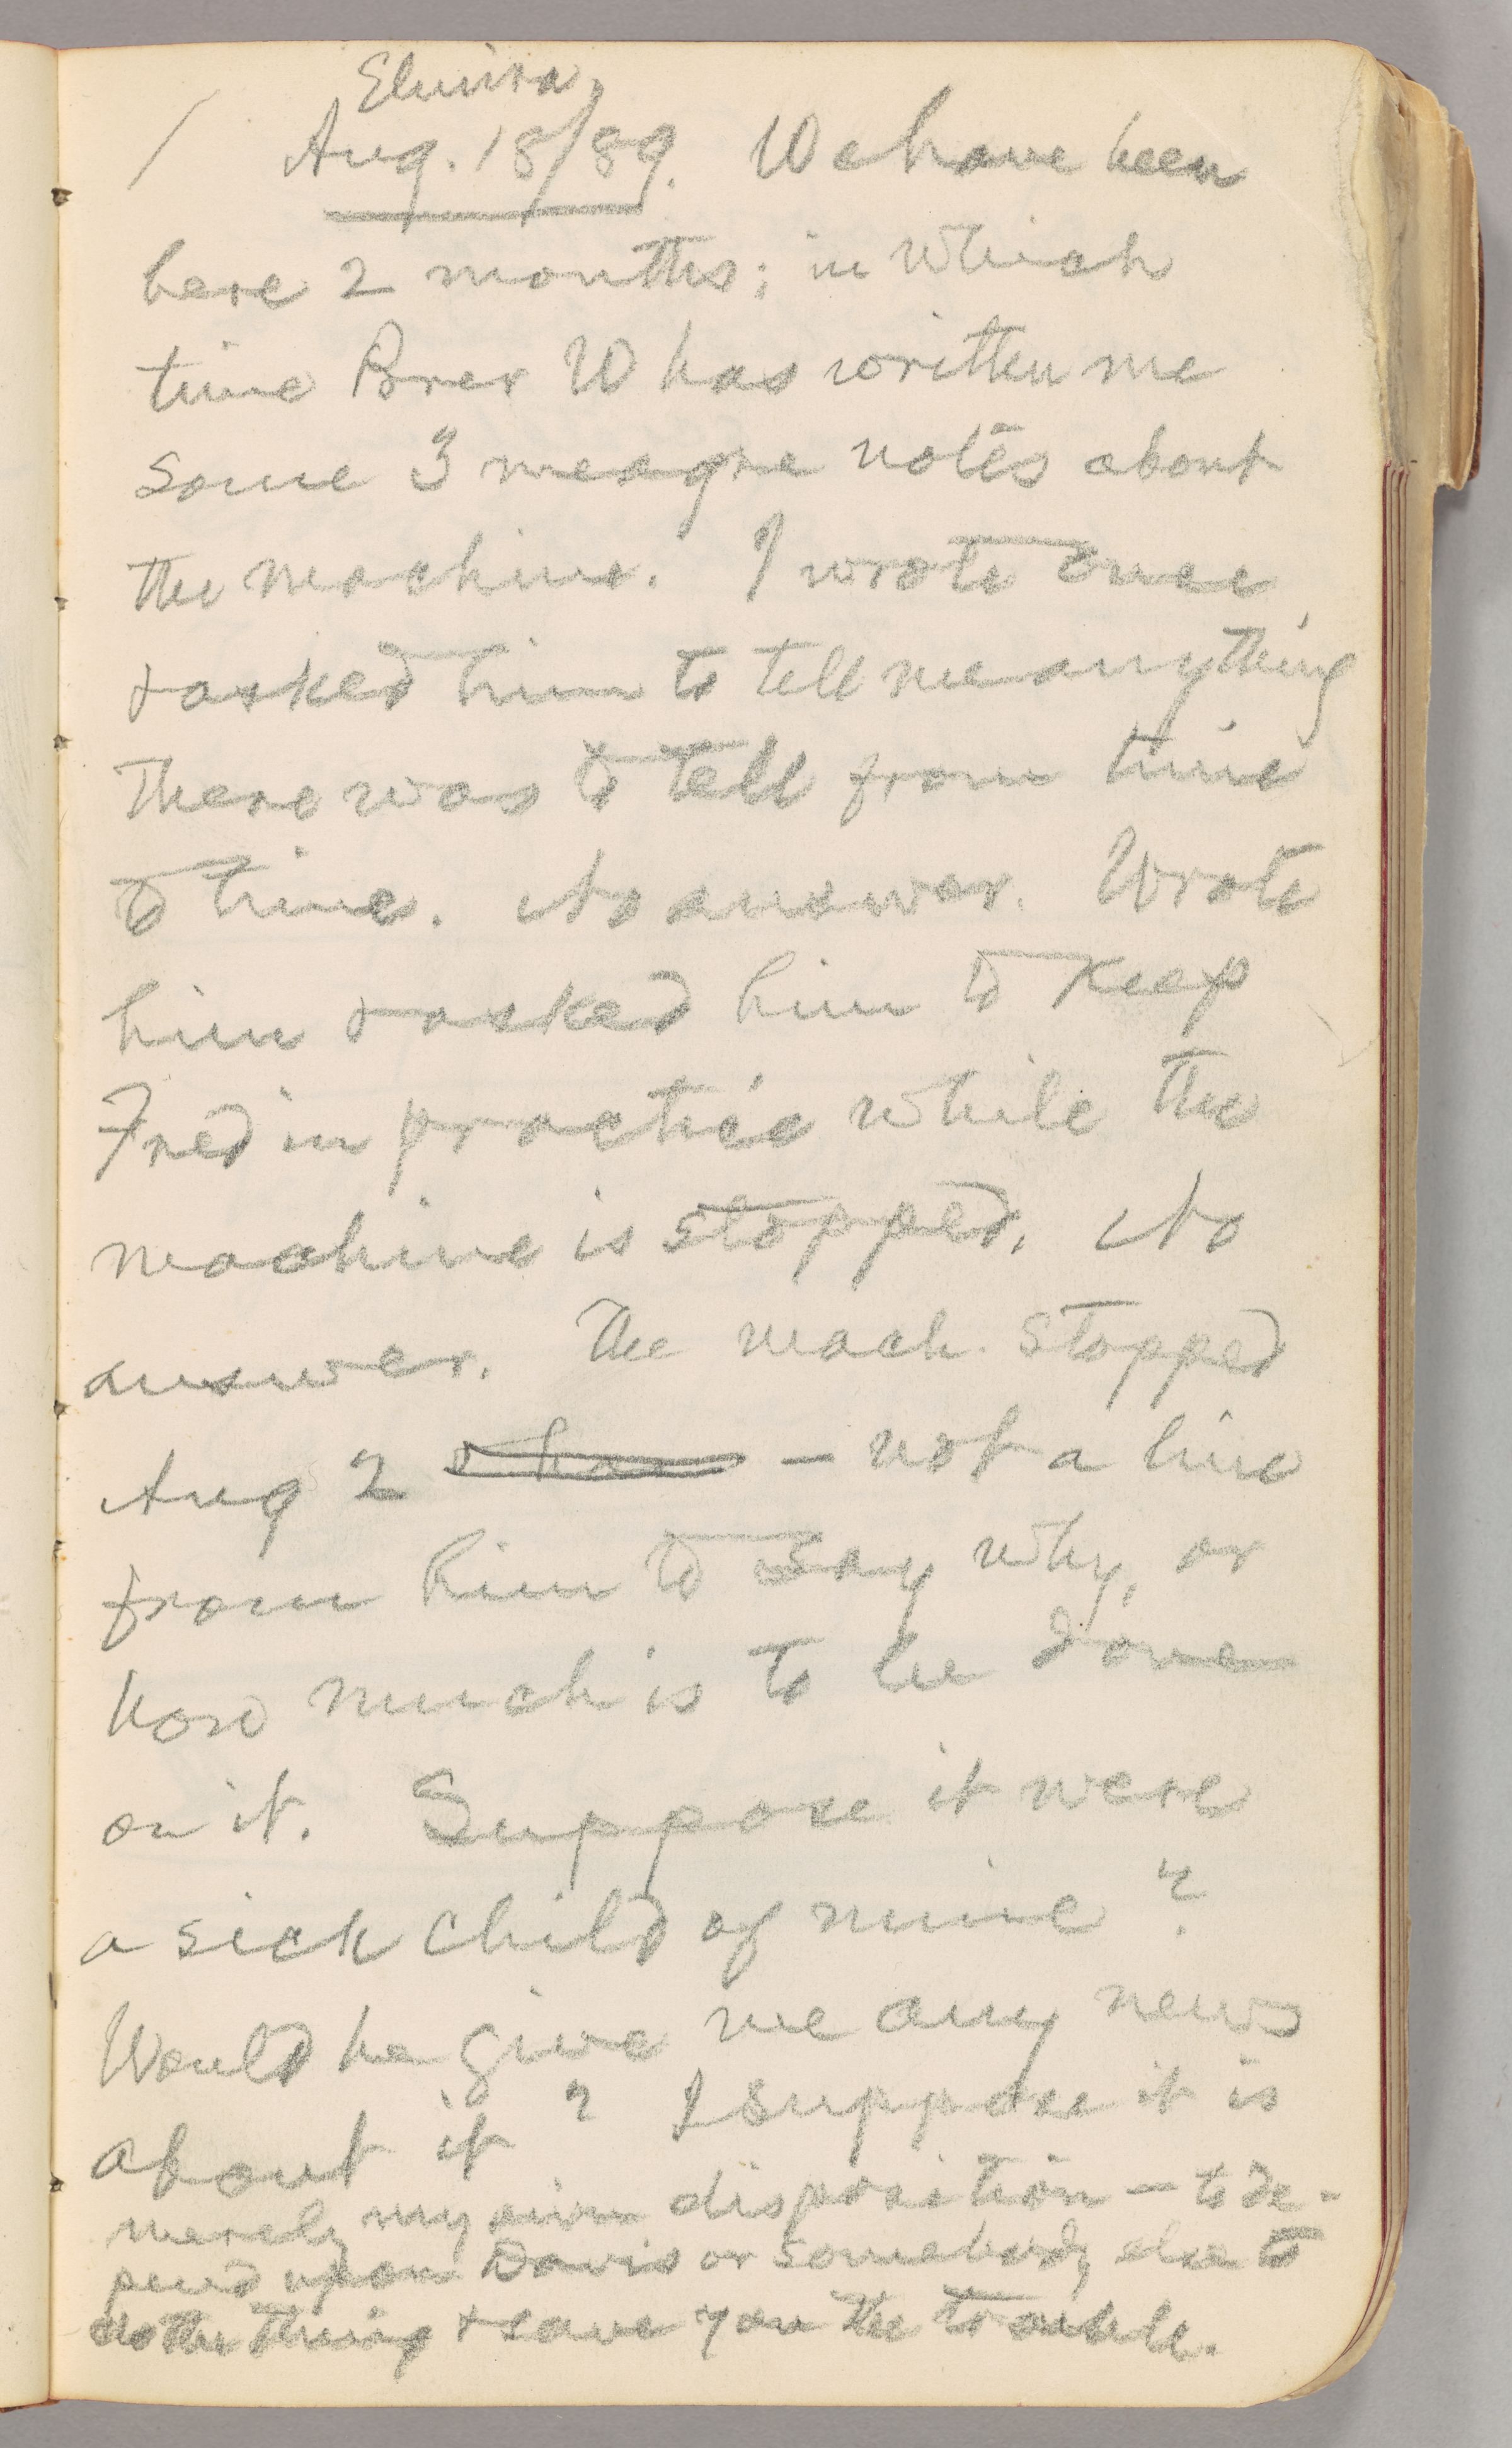 Elmira,
/ Aug. 18/89. We have been
here 2 months; in which
time Brer W has written me
some 3 meagre notes about
the machine. I wrote once
& asked him to tell me anything
there was to tell from time
to time. No answer. Wrote
him & asked him to keep
Fred in practice while the
machine is stopped. No
answer. The mach. stopped
Aug 2 & has — not a line
from him to say why, or
how much is to be done
on it. Suppose it were
a sick child of mine?
Would he give me any news
about it? I suppose it is
merely my own disposition — to de-
pend upon Davis or somebody else to
do the thing & save you the trouble.